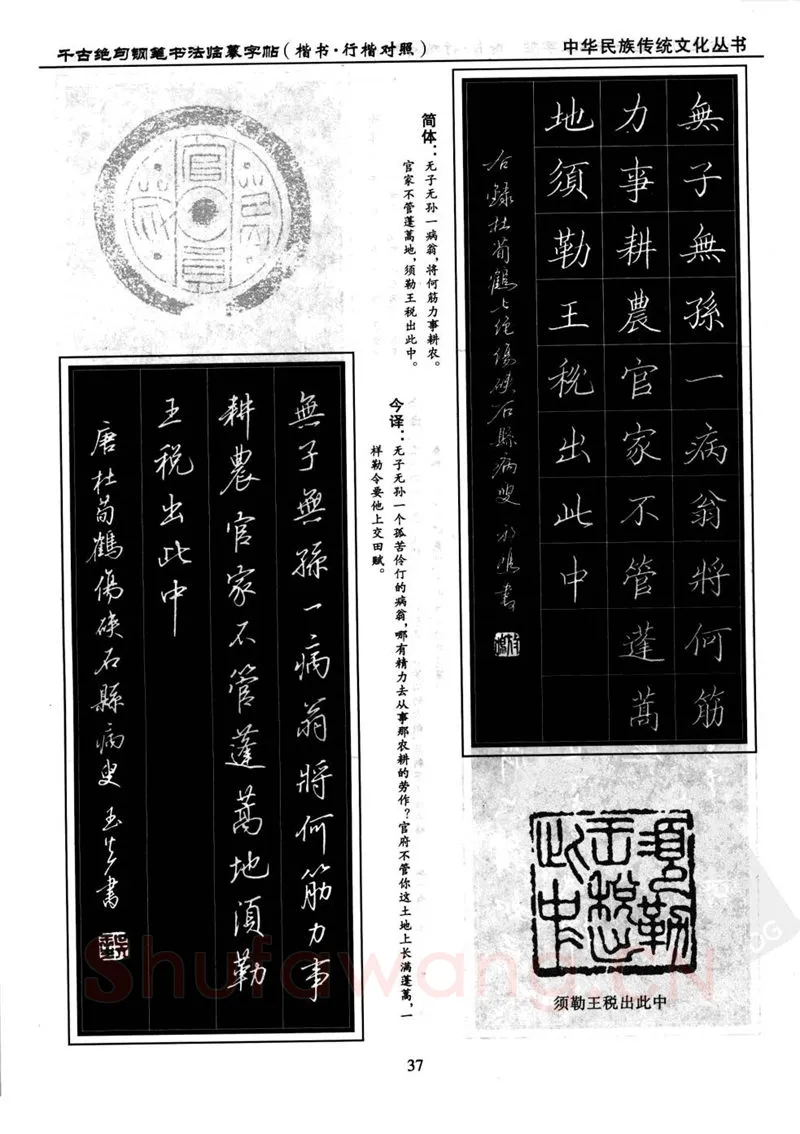 千古绝句钢笔书法临摹字帖(楷书·行楷对照)
中华民族传统文化丛书
無子無孫一病翁將何筋
力事耕農官家不管蓬蒿
地須勒王税出此中
右録杜荀鶴七绝傷硤石縣病叟
简体：无子无孙一病翁，将何筋力事耕农。
官家不管蓬蒿地，须勒王税出此中。
今译：无子无孙一个孤苦伶仃的病翁，哪有精力去从事那农耕的劳作？官府不管你这土地上长满蓬蒿，一
样勒令要他上交田赋。
無子無孫一病翁將何筋力事
耕農官家不管蓬蒿地須勒
王税出此中
唐杜荀鶴傷硤石縣病叟
須勒
王税出
此中
须勒王税出此中
Shufawang.CN
37